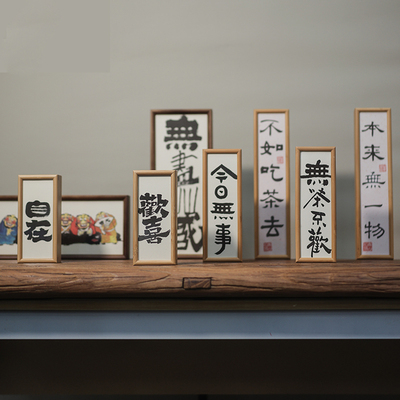 自在
歡喜
無
今日無事
不如吃茶去
無茶不歡
本来無一物